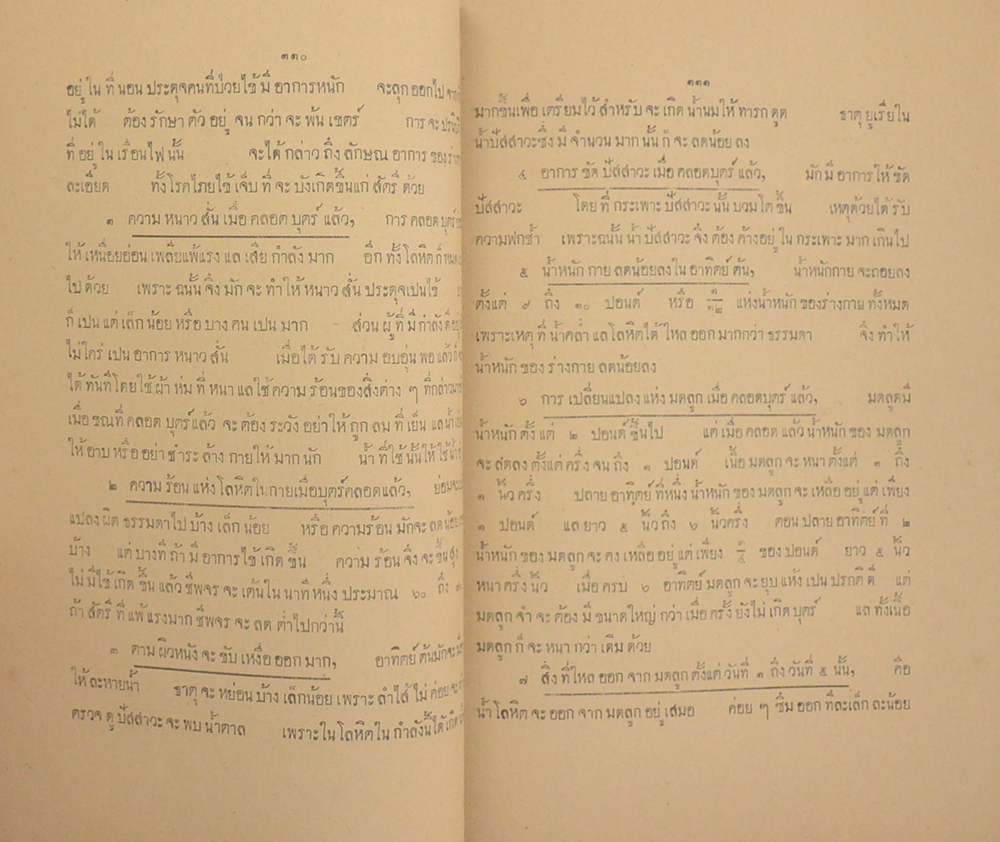 ๑๑๐
อยู่ ใน ที่ นอน ประดุจคนที่ป่วยไข้ มี อาการหนัก จะลุก ออกไป
ไม่ได้ ต้อง รักษา ตัว อยู่ จน กว่า จะ พ้น เขตร์ การ จะ
ที่ อยู่ ใน เรือนไฟ นั้น จะได้ กล่าว ถึง ลักษณ อาการ ของ
ละเอียด ทั้งโรคไภยไข้ เจ็บ ที่ จะ บังเกิดขึ้นแก่ สัตรี ด้วย
๑ ความ หนาว สั่น เมื่อ คลอด บุตร์ แล้ว, การ คลอด บุตร์
ให้ เหนื่อยอ่อน เพลียแพ้แรง แล เสีย กำลัง มาก อีก ทั้งโลหิต ก็
ไป ด้วย เพราะ ฉนั้น จึง มัก จะ ทำ ให้ หนาว สั่น ประดุจเปนไข้
ก็ เปน แต่ เล็ก น้อย หรือ บาง คน เปน มาก ส่วน ผู้ ที่ มี กำลัง
ไม่ใคร่ เปน อาการ หนาว สั่น เมื่อ ได้ รับ ความ อบอุ่น พอ แล้ว ก็
ได้ ทันที โดย ใช้ ผ้า ห่ม ที่ หนา แล ใช้ ความ ร้อน ของ สิ่ง ต่าง ๆ ที่
เมื่อ ขณที่ คลอด บุตร์ แล้ว จะ ต้อง ระวัง อย่า ให้ ถูก ลม ที่ เย็น แล
ให้ อาบ หรือ อย่า ชำระ ล้าง กาย ให้ มาก นัก น้ำ ที่ ใช้ นั้น ให้ ใช้
๒ ความ ร้อน แห่ง โลหิต ใน กาย เมื่อ บุตร์ คลอด แล้ว,
แปลง ผิด ธรรมดา ไป บ้าง เล็ก น้อย หรือ ความ ร้อน มัก จะ ลด
บ้าง แต่ บางที ถ้า มี อาการ ไข้ เกิด ขึ้น ความ ร้อน จึง จะ ขึ้น สูง
ไม่ มี ไข้ เกิด ขึ้น แล้ว ชีพจร จะ เต้น ใน นาที หนึ่ง ประมาณ ๖๐ ถึง
ถ้า สัตรี ที่ แพ้ แรง มาก ชีพจร จะ ลด ต่ำ ไป กว่า นี้
๓ ตาม ผิวหนัง จะ ขับ เหงื่อ ออก มาก, อาทิตย์ ต้นมักจะ
ให้ ละหายน้ำ ธาตุ จะ หย่อน บ้าง เล็กน้อย เพราะ ลำไส้ ไม่ ค่อย จะ
ตรวจ ดู ปัสสาวะ จะ พบ น้ำตาล เพราะ ใน โลหิต ใน กำลัง
๑๑๑
มาก ขึ้น เพื่อ เตรียม ไว้ สำหรับ จะ เกิด น้ำนม ให้ ทารก ดูด ธาตุ ยูเรีย ใน
น้ำ ปัสสาวะ ซึ่ง มี จำนวน มาก นั้น ก็ จะ ลด น้อย ลง
๔ อาการ ขัด ปัสสาวะ เมื่อ คลอด บุตร์ แล้ว, มัก มี อาการ ให้ ขัด
ปัสสาวะ โดย ที่ กระเพาะ ปัสสาวะ นั้น บวม โต ขึ้น เหตุ ด้วย ได้ รับ
ความ ฟกช้ำ เพราะ ฉนั้น น้ำ ปัสสาวะ จึง ต้อง ค้าง อยู่ ใน กระเพาะ มาก เกิน ไป
๕ น้ำหนัก กาย ลด น้อย ลง ใน อาทิตย์ ต้น, น้ำหนัก กาย จะ ถอย ลง
ตั้งแต่ ๙ ถึง ๑๐ ปอนด์ หรือ ๑/๑๒ แห่ง น้ำหนัก ของ ร่างกาย ทั้งหมด
เพราะ เหตุ ที่ น้ำ คล่ำ แล โลหิต ได้ ไหล ออก มาก กว่า ธรรมดา จึง ทำ ให้
น้ำหนัก ของ ร่างกาย ลด น้อย ลง
๖ การ เปลี่ยนแปลง แห่ง มดลูก เมื่อ คลอด บุตร์ แล้ว, มดลูก มี
น้ำหนัก ตั้ง แต่ ๒ ปอนด์ ขึ้น ไป แต่ เมื่อ คลอด แล้ว น้ำหนัก ของ มดลูก
จะ ลดลง ตั้งแต่ ครึ่ง จน ถึง ๑ ปอนด์ เนื้อ มดลูก จะ หนา ตั้งแต่ ๑ ถึง
๑ นิ้ว ครึ่ง ปลาย อาทิตย์ ที่ หนึ่ง น้ำหนัก ของ มดลูก จะ เหลือ อยู่ แต่ เพียง
๑ ปอนด์ แล ยาว ๕ นิ้ว ถึง ๖ นิ้ว ครึ่ง ตอน ปลาย อาทิตย์ ที่ ๒
น้ำหนัก ของ มดลูก จะ คง เหลือ อยู่ แต่ เพียง ของ ปอนด์ ยาว ๕ นิ้ว
หนา ครึ่ง นิ้ว เมื่อ ครบ ๖ อาทิตย์ มดลูก จะ ยุบ แห้ง เปน ปรกติ ดี แต่
มดลูก จำ จะ ต้อง มี ขนาด ใหญ่ กว่า เมื่อ ครั้ง ยัง ไม่ เกิด บุตร์ แล ทั้ง เนื้อ
มดลูก ก็ จะ หนา กว่า เดิม ด้วย
๗ สิ่ง ที่ ไหล ออก จาก มดลูก ตั้งแต่ วันที่ ๑ ถึง วันที่ ๕ นั้น, คือ
น้ำ โลหิต จะ ออก จาก มดลูก อยู่ เสมอ ค่อย ๆ ซึม ออก ที่ละ เล็ก ละ น้อย